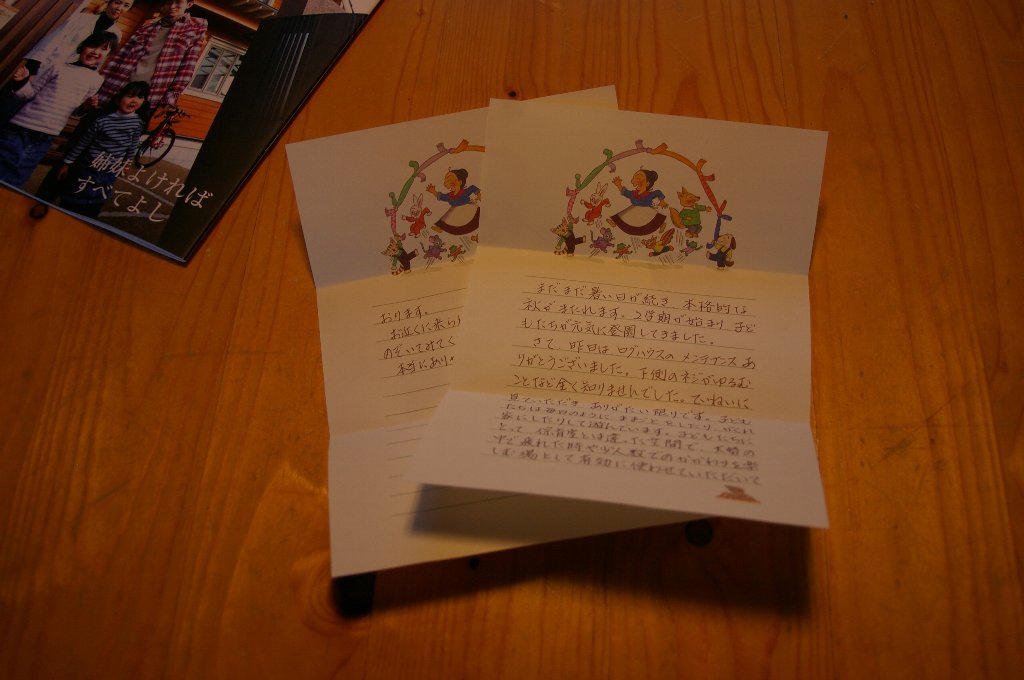 姉妹よければ
すべてよし
まだまだ暑い日が続き 本格的な
秋がまたれます。2学期が始まり 子ど
もたちが元気に登園してきました。
さて、昨日は ログハウスの メンテナンス あ
りがとうございました。下側のネジがゆるむ
ことなど全く知りませんでした。ていねいに
見ていただき ありがたい限りです。子ども
たちは毎日のように ままごと をしたり、かくれ
家にしたりして遊んでいます。子どもたちに
とって 保育室とは違った空間で、大勢の
中で疲れた時や少人数でのかかわりを楽
しむ場として有効に使わせていただいて
おります。
お近くに来ら
のぞいてみてく
本当にあり